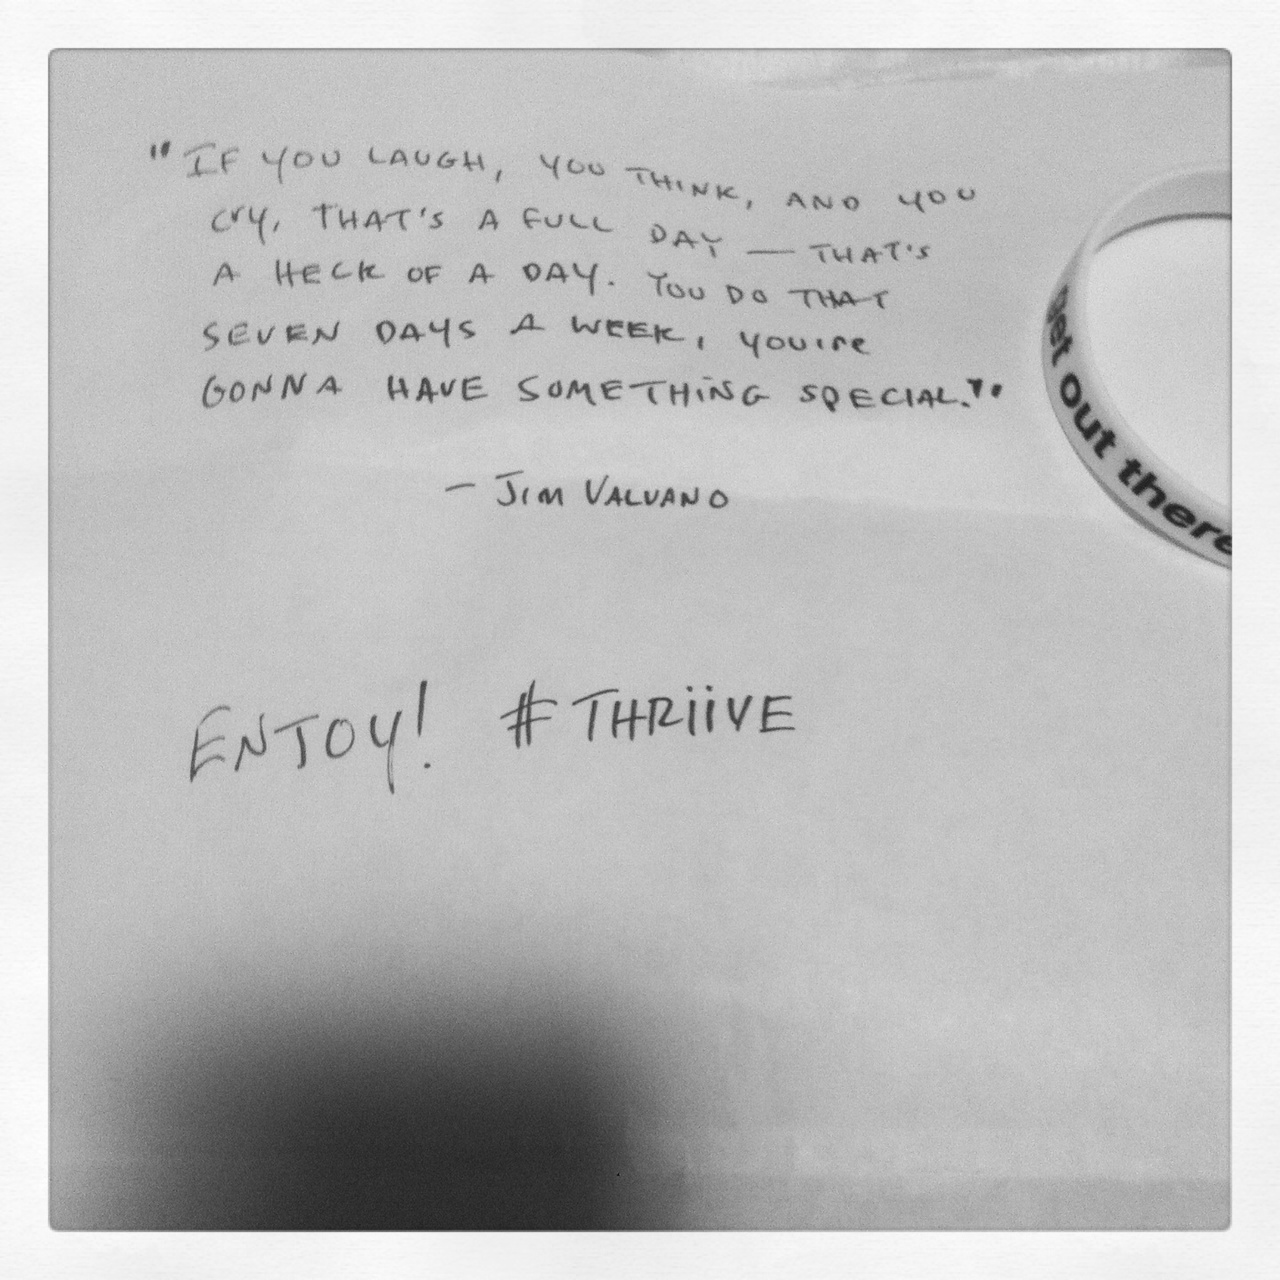 "IF YOU LAUGH, YOU THINK, AND YOU
CRY, THAT'S A FULL DAY — THAT'S
A HECK OF A DAY. YOU DO THAT
SEVEN DAYS A WEEK, YOU'RE
GONNA HAVE SOMETHING SPECIAL."
— JIM VALVANO
get out there
ENJOY! #THRiiVE